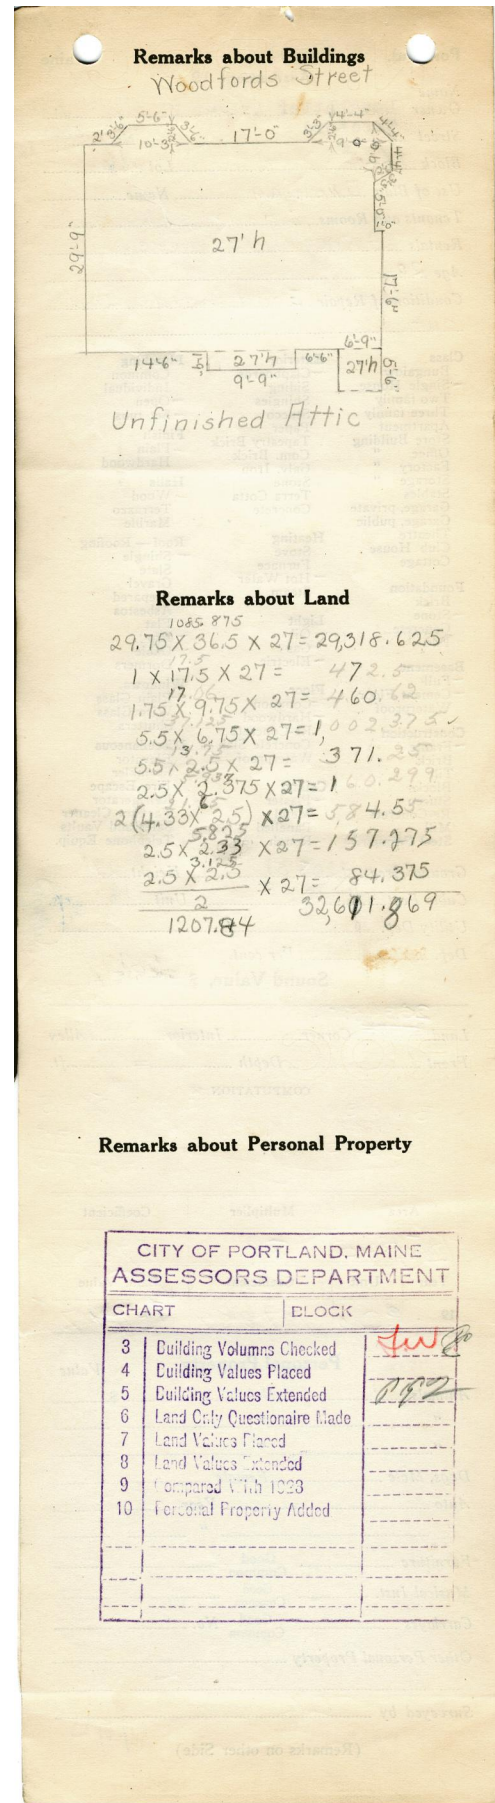 Remarks about Buildings
Woodfords Street
5'-6" 4'-4"
2' 3'-6" 3'-6" 17'-0" 3'-3" 4'-4"
10'-3"
29'-9"
27' h
17'-6"
6'-9"
14'-6" 27' h 6'-6" 27' h 5'-6"
9'-9"
Unfinished Attic
Remarks about Land
1085.875
29.75 X 36.5 X 27 = 29,318.625
17.5
1 X 17.5 X 27 = 472.5
17.06
1.75 X 9.75 X 27 = 460.62
37.125
5.5 X 6.75 X 27 = 1,002.375
13.75
5.5 X 2.5 X 27 = 371.25
2.5 X 2.375 X 27 = 160.299
2(4.33 X 2.5) X 27 = 584.55
5.825
2.5 X 2.33 X 27 = 157.275
3.125
2.5 X 2.5 X 27 = 84.375
2
1207.84 32,611.869
Remarks about Personal Property
CITY OF PORTLAND, MAINE
ASSESSORS DEPARTMENT
CHART BLOCK
3 Building Volumns Checked
4 Building Values Placed
5 Building Values Extended
6 Land Only Questionaire Made
7 Land Values Placed
8 Land Values Extended
9 Compared With 1923
10 Personal Property Added